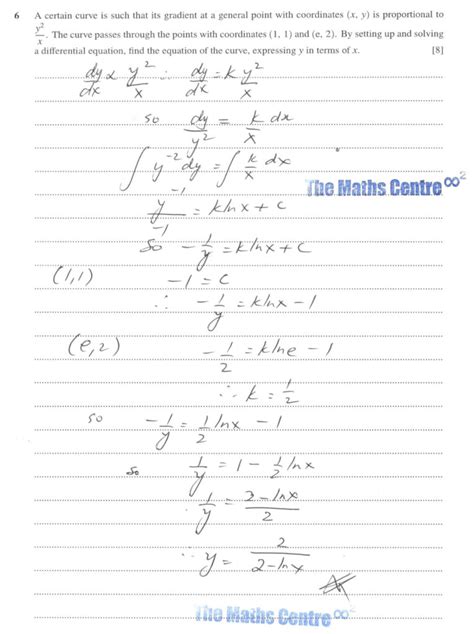 6 A certain curve is such that its gradient at a general point with coordinates (x, y) is proportional to
y²/x. The curve passes through the points with coordinates (1, 1) and (e, 2). By setting up and solving
a differential equation, find the equation of the curve, expressing y in terms of x. [8]
dy/dx ∝ y²/x ∴ dy/dx = k y²/x
so dy/y² = k/x dx
∫ y⁻² dy = ∫ k/x dx
The Maths Centre ∞²
y⁻¹/-1 = k ln x + c
So - 1/y = k ln x + c
(1,1) -1 = c
∴ - 1/y = k ln x - 1
(e,2) - 1/2 = k ln e - 1
∴ k = 1/2
so - 1/y = 1/2 ln x - 1
so 1/y = 1 - 1/2 ln x
1/y = 2 - ln x / 2
∴ y = 2 / 2 - ln x
The Maths Centre ∞²